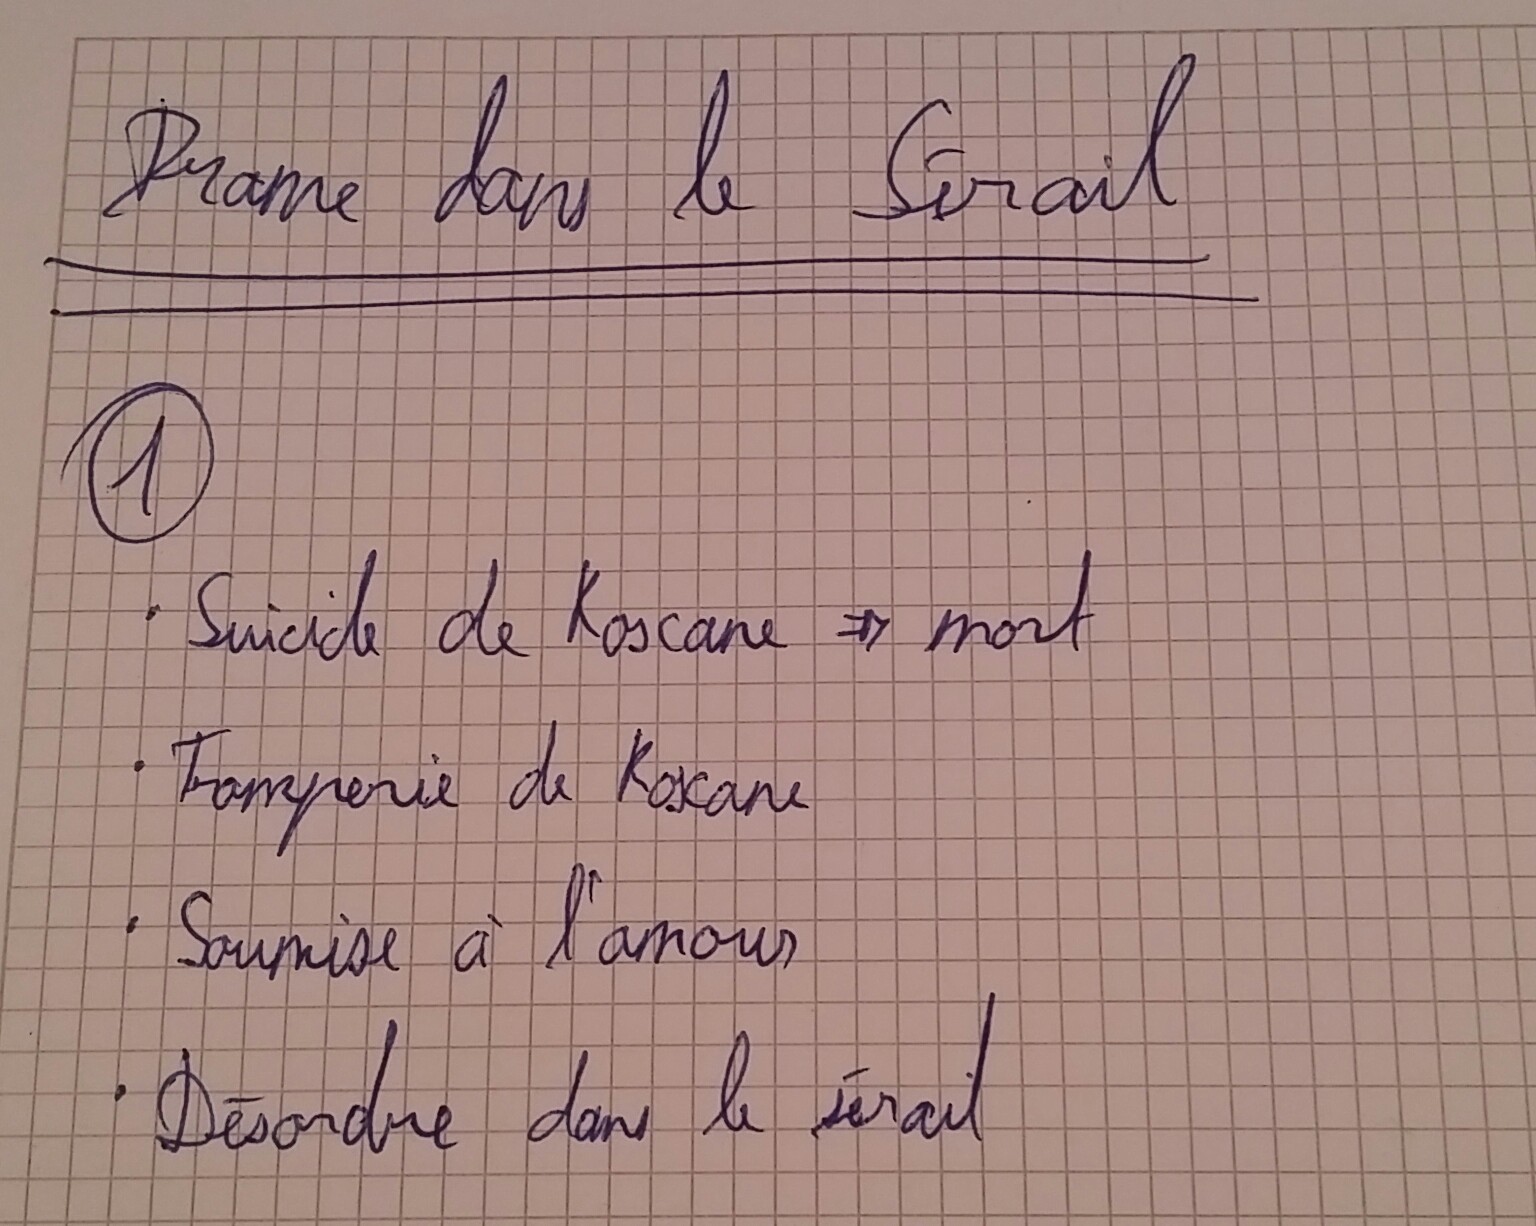 Drame dans le Sérail
1
· Suicide de Roxcane ⇒ mort
· Tromperie de Roxane
· Soumise à l'amour
· Désordre dans le sérail